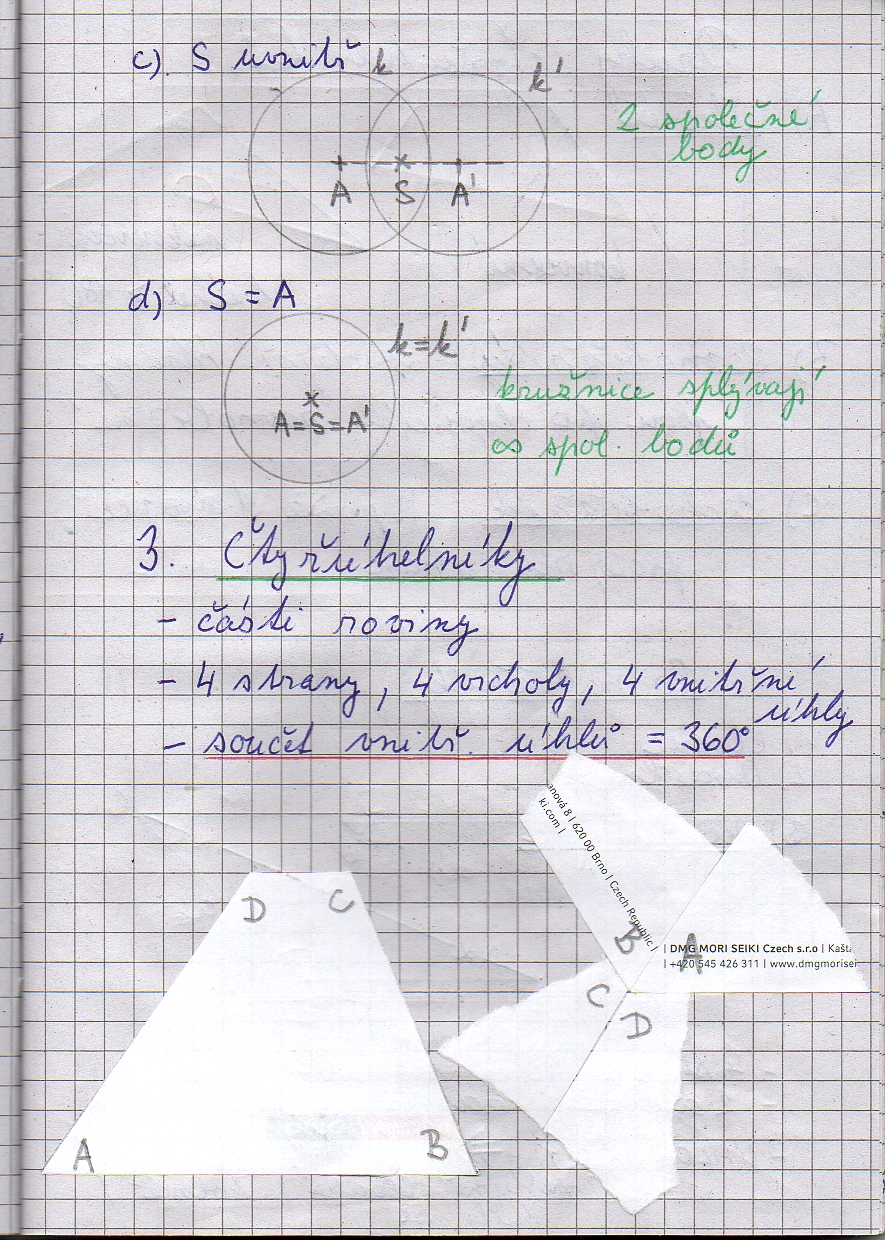 c). S uvnitř k
k'
2 společné
body
A S A'
d) S = A
k=k'
A=S=A'
kružnice splývají
∞ spol. bodů
3. Čtyřúhelníky
- části roviny
- 4 strany, 4 vrcholy, 4 vnitřní
úhly
- součet vnitř. úhlů = 360°
anová 8 | 620 00 Brno | Czech Republic |
ki.com |
D C
B A
| DMG MORI SEIKI Czech s.r.o | Kašta
| +420 545 426 311 | www.dmgmorisei
C D
A B